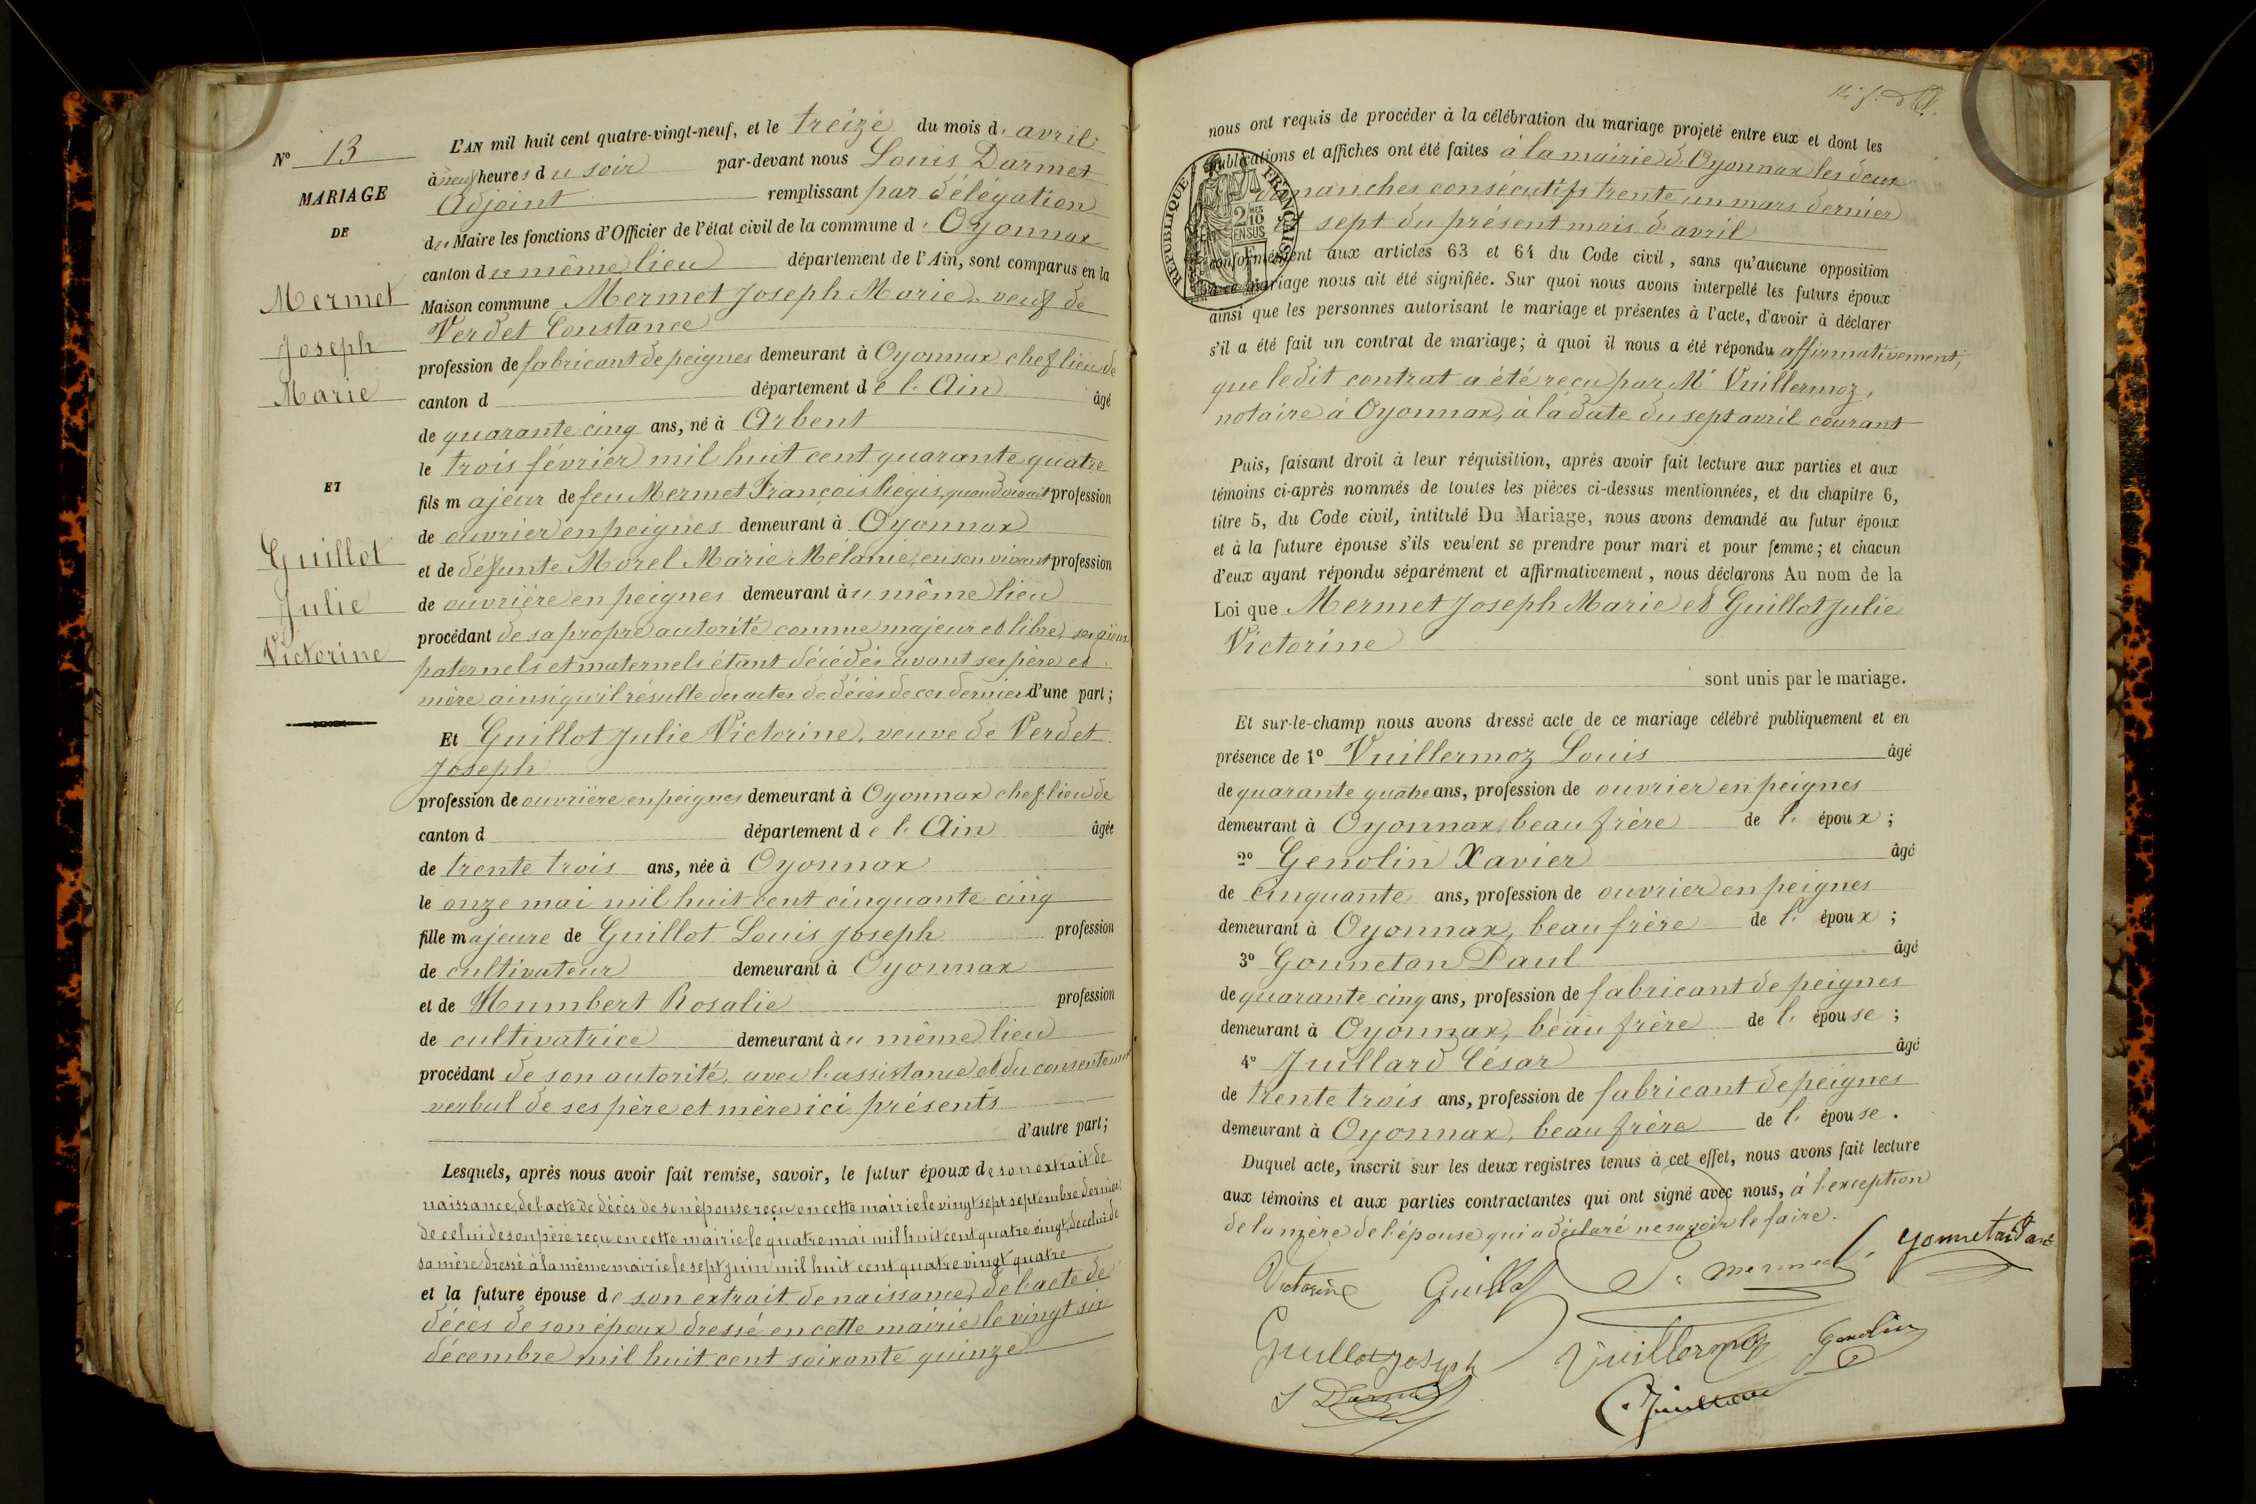 N° 13
MARIAGE
DE
Mermet
Joseph
Marie
ET
Guillot
Julie
Victorine
L'AN mil huit cent quatre-vingt-neuf, et le treize du mois d'avril
à neuf heures du soir par-devant nous Louis Darmet
Adjoint remplissant par délégation
du Maire les fonctions d'Officier de l'état civil de la commune d'Oyonnax
canton du même lieu département de l'Ain, sont comparus en la
Maison commune Mermet Joseph Marie, veuf de
Verdet Constance
profession de fabricant de peignes demeurant à Oyonnax chef lieu de
canton d département de l'Ain âgé
de quarante cinq ans, né à Arbent
le trois février mil huit cent quarante quatre
fils majeur de feu Mermet François Régis, quand vivait profession
de ouvrier en peignes demeurant à Oyonnax
et de défunte Morel Marie Mélanie, en son vivant profession
de ouvrière en peignes demeurant au même lieu
procédant de sa propre autorité comme majeur et libre, ses aïeux
paternels et maternels étant décédés avant ses père et
mère ainsi qu'il résulte des actes de décès de ces derniers d'une part;
Et Guillot Julie Victorine, veuve de Verdet
Joseph
profession de ouvrière en peignes demeurant à Oyonnax chef-lieu de
canton d département de l'Ain âgée
de trente trois ans, née à Oyonnax
le onze mai mil huit cent cinquante cinq
fille majeure de Guillot Louis Joseph profession
de cultivateur demeurant à Oyonnax
et de Humbert Rosalie profession
de cultivatrice demeurant au même lieu
procédant de son autorité, avec l'assistance et du consentement
verbal de ses père et mère ici présents
d'autre part;
Lesquels, après nous avoir fait remise, savoir, le futur époux de son extrait de
naissance, de l'acte de décès de son épouse reçu en cette mairie le vingt sept septembre dernier
de celui de son père reçu en cette mairie le quatre mai mil huit cent quatre vingt, de celui de
sa mère dressé à la même mairie le sept juin mil huit cent quatre vingt quatre
et la future épouse de son extrait de naissance, de l'acte de
décès de son époux dressé en cette mairie le vingt six
décembre mil huit cent soixante quinze
nous ont requis de procéder à la célébration du mariage projeté entre eux et dont les
publications et affiches ont été faites à la mairie d'Oyonnax les deux
dimanches consécutifs trente un mars dernier
et sept du présent mois d'avril
conformément aux articles 63 et 64 du Code civil, sans qu'aucune opposition
à ce mariage nous ait été signifiée. Sur quoi nous avons interpellé les futurs époux
ainsi que les personnes autorisant le mariage et présentes à l'acte, d'avoir à déclarer
s'il a été fait un contrat de mariage; à quoi il nous a été répondu affirmativement,
que le dit contrat a été reçu par Me Vuillermoz,
notaire à Oyonnax, à la date du sept avril courant
RÉPUBLIQUE FRANÇAISE
2 MES 10
EN SUS
Puis, faisant droit à leur réquisition, après avoir fait lecture aux parties et aux
témoins ci-après nommés de toutes les pièces ci-dessus mentionnées, et du chapitre 6,
titre 5, du Code civil, intitulé Du Mariage, nous avons demandé au futur époux
et à la future épouse s'ils veulent se prendre pour mari et pour femme; et chacun
d'eux ayant répondu séparément et affirmativement, nous déclarons Au nom de la
Loi que Mermet Joseph Marie et Guillot Julie
Victorine
sont unis par le mariage.
Et sur-le-champ nous avons dressé acte de ce mariage célébré publiquement et en
présence de 1° Vuillermoz Louis âgé
de quarante quatre ans, profession de ouvrier en peignes
demeurant à Oyonnax, beau frère de l'époux;
2° Genolin Xavier âgé
de cinquante ans, profession de ouvrier en peignes
demeurant à Oyonnax, beau frère de l'époux;
3° Gonnetan Paul âgé
de quarante cinq ans, profession de fabricant de peignes
demeurant à Oyonnax, beau frère de l'épouse;
4° Juillard César âgé
de trente trois ans, profession de fabricant de peignes
demeurant à Oyonnax, beau frère de l'épouse.
Duquel acte, inscrit sur les deux registres tenus à cet effet, nous avons fait lecture
aux témoins et aux parties contractantes qui ont signé avec nous, à l'exception
de la mère de l'épouse qui a déclaré ne savoir le faire.
Victorine Guillot J. Mermet Gonnetan Paul
Guillot Joseph Vuillermoz Genolin
L Darmet C. Juillard